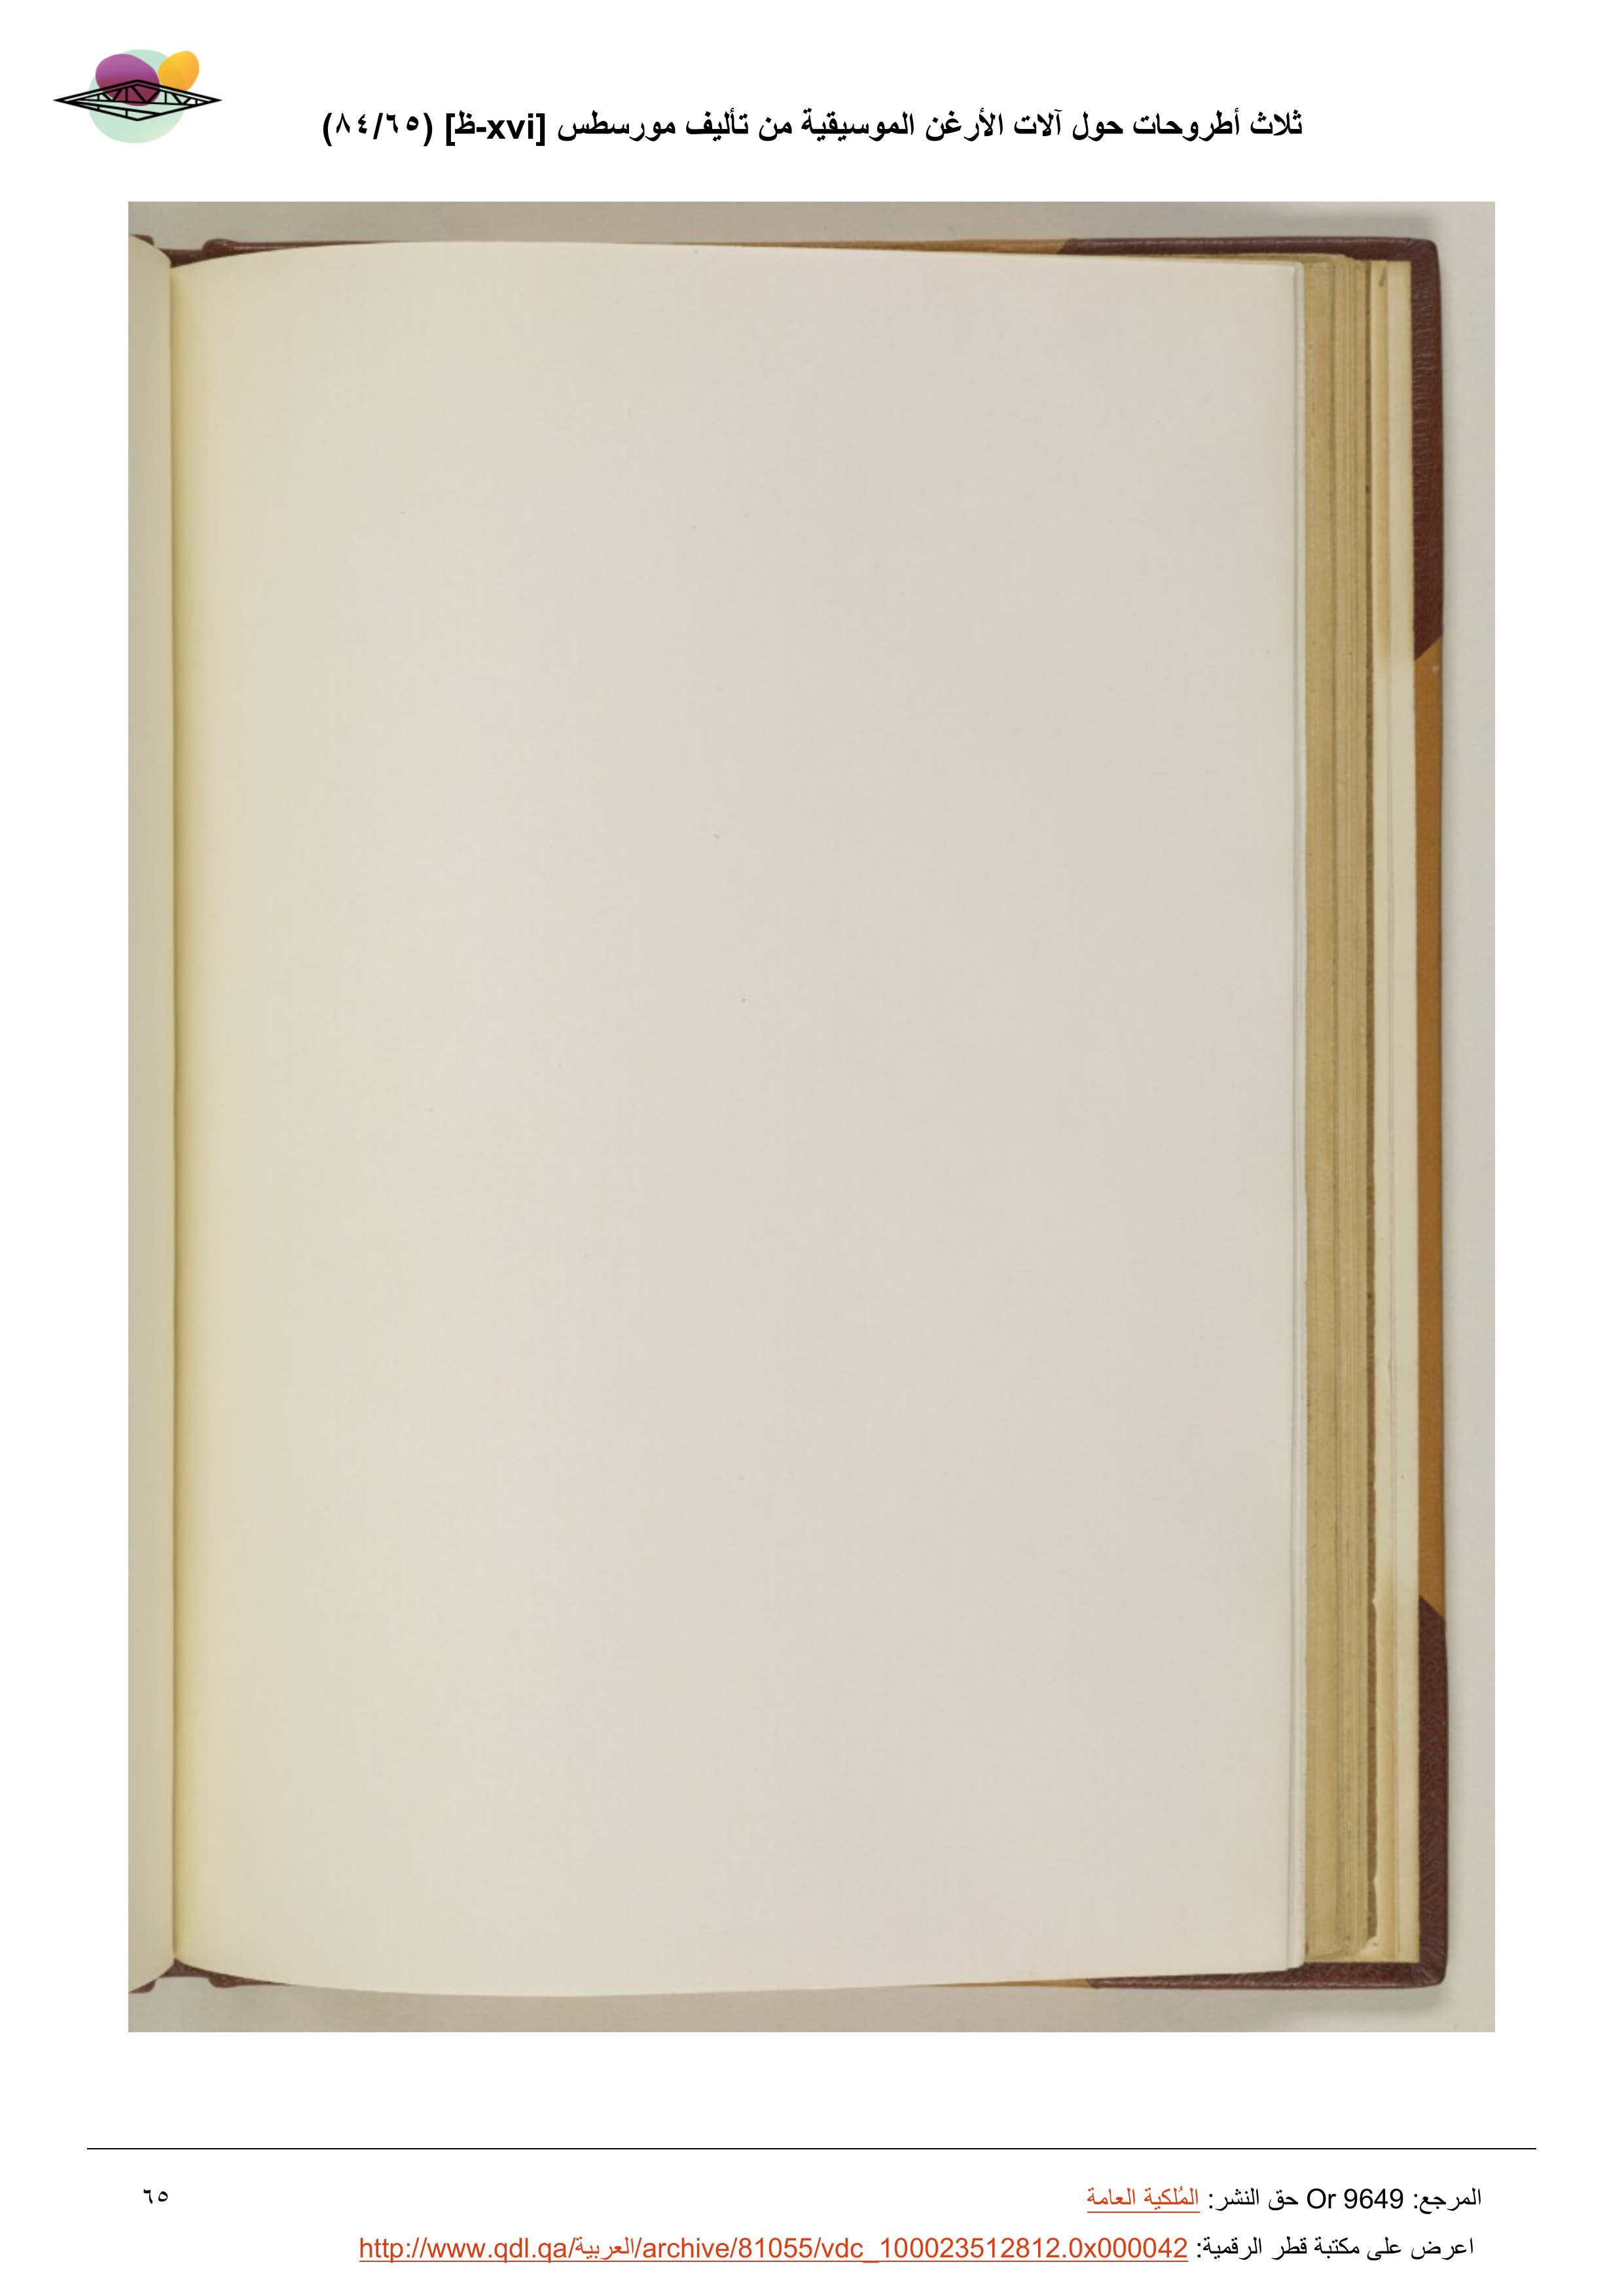 ثلاث أطروحات حول آلات الأرغن الموسيقية من تأليف مورسطس [xvi-ظ] (٦٥/٨٤)
المرجع: Or 9649 حق النشر: المُلكية العامة
٦٥
اعرض على مكتبة قطر الرقمية: http://www.qdl.qa/العربية/archive/81055/vdc_100023512812.0x000042